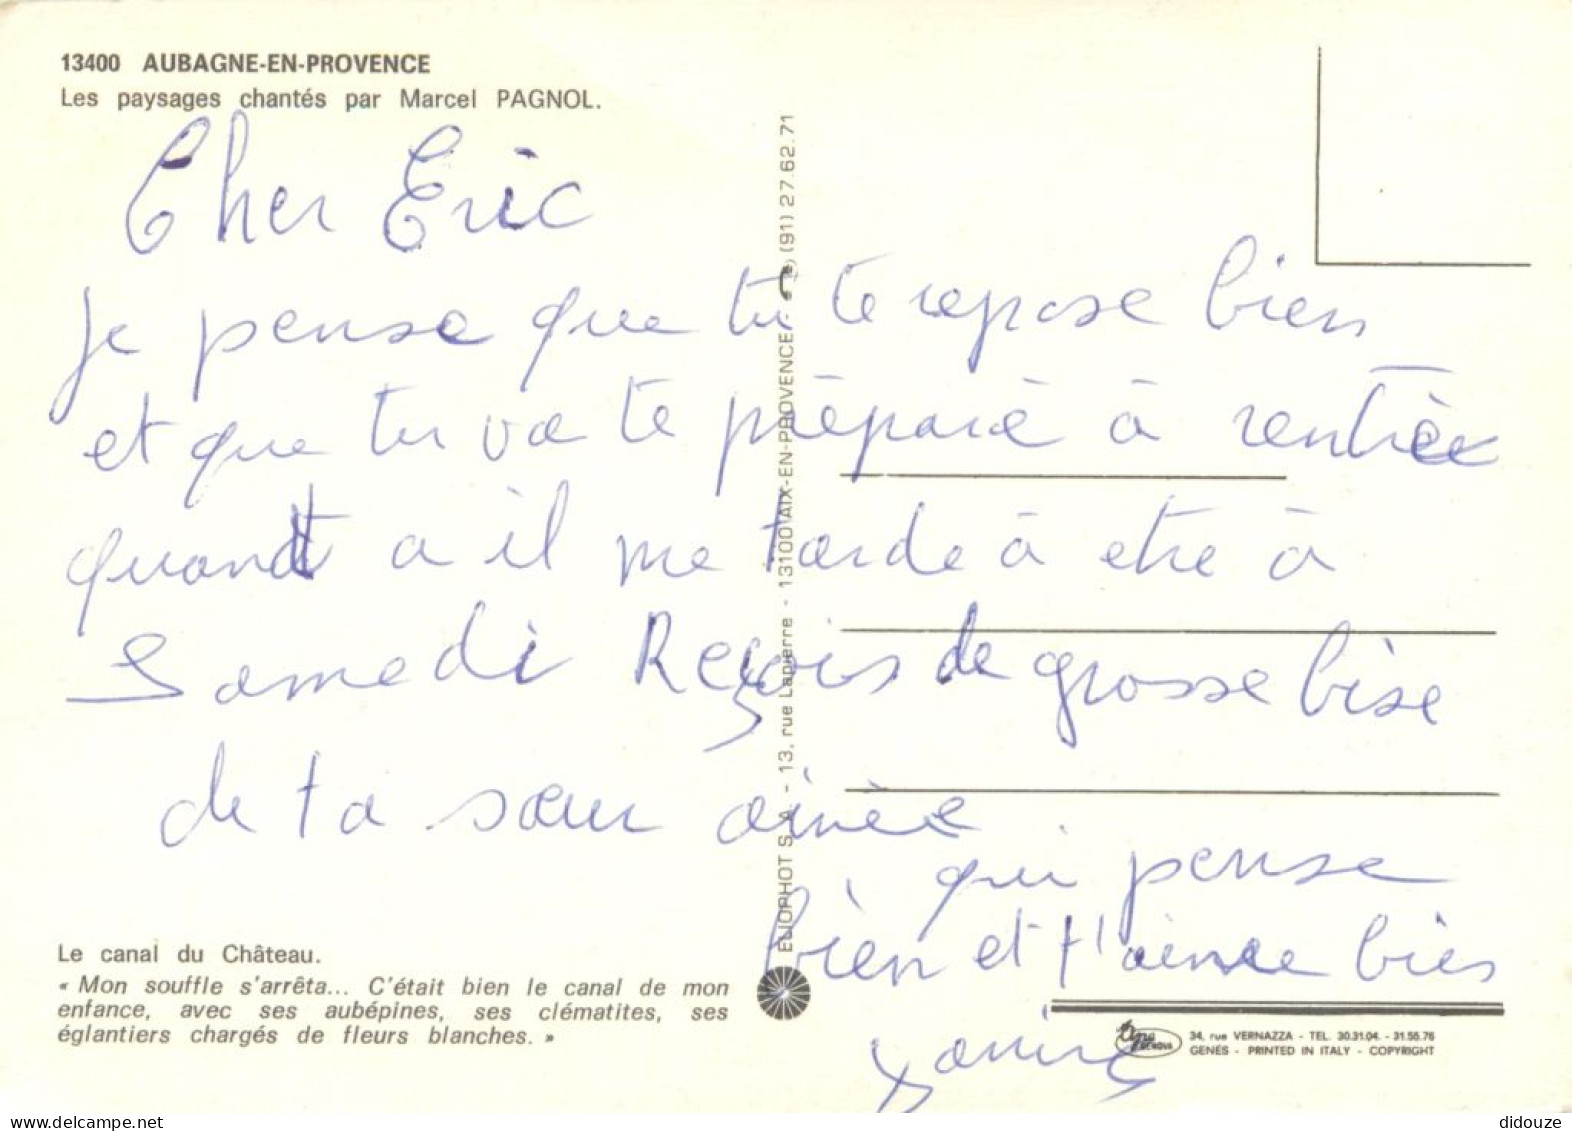 13400 AUBAGNE-EN-PROVENCE
Les paysages chantés par Marcel PAGNOL.
Cher Eric
je pense que tu te repose bien
et que tu va te préparé à rentrée
quant a il me tarde à etre à
Samedi Reçois de grosse bise
de ta sœur ainée
qui pense
bien et t'aime bien
Le canal du Château.
« Mon souffle s'arrêta... C'était bien le canal de mon
enfance, avec ses aubépines, ses clématites, ses
églantiers chargés de fleurs blanches. »
ELIOPHOT S.A. - 13, rue Lapierre - 13100 AIX-EN-PROVENCE - (91) 27.62.71
GENOVA
34, rue VERNAZZA - TEL. 30.31.04. - 31.55.76
GENÈS - PRINTED IN ITALY - COPYRIGHT
didouze